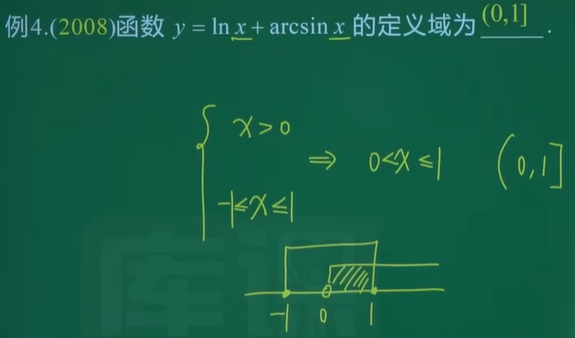 例4.(2008)函数 y = ln x + arcsin x 的定义域为 (0,1] .
x>0
⇒ 0<x≤1 (0,1]
-1≤x≤1
-1 0 1
库课